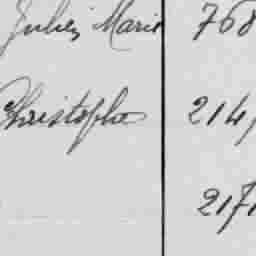 Julien Marie 768
Christophe 214
217